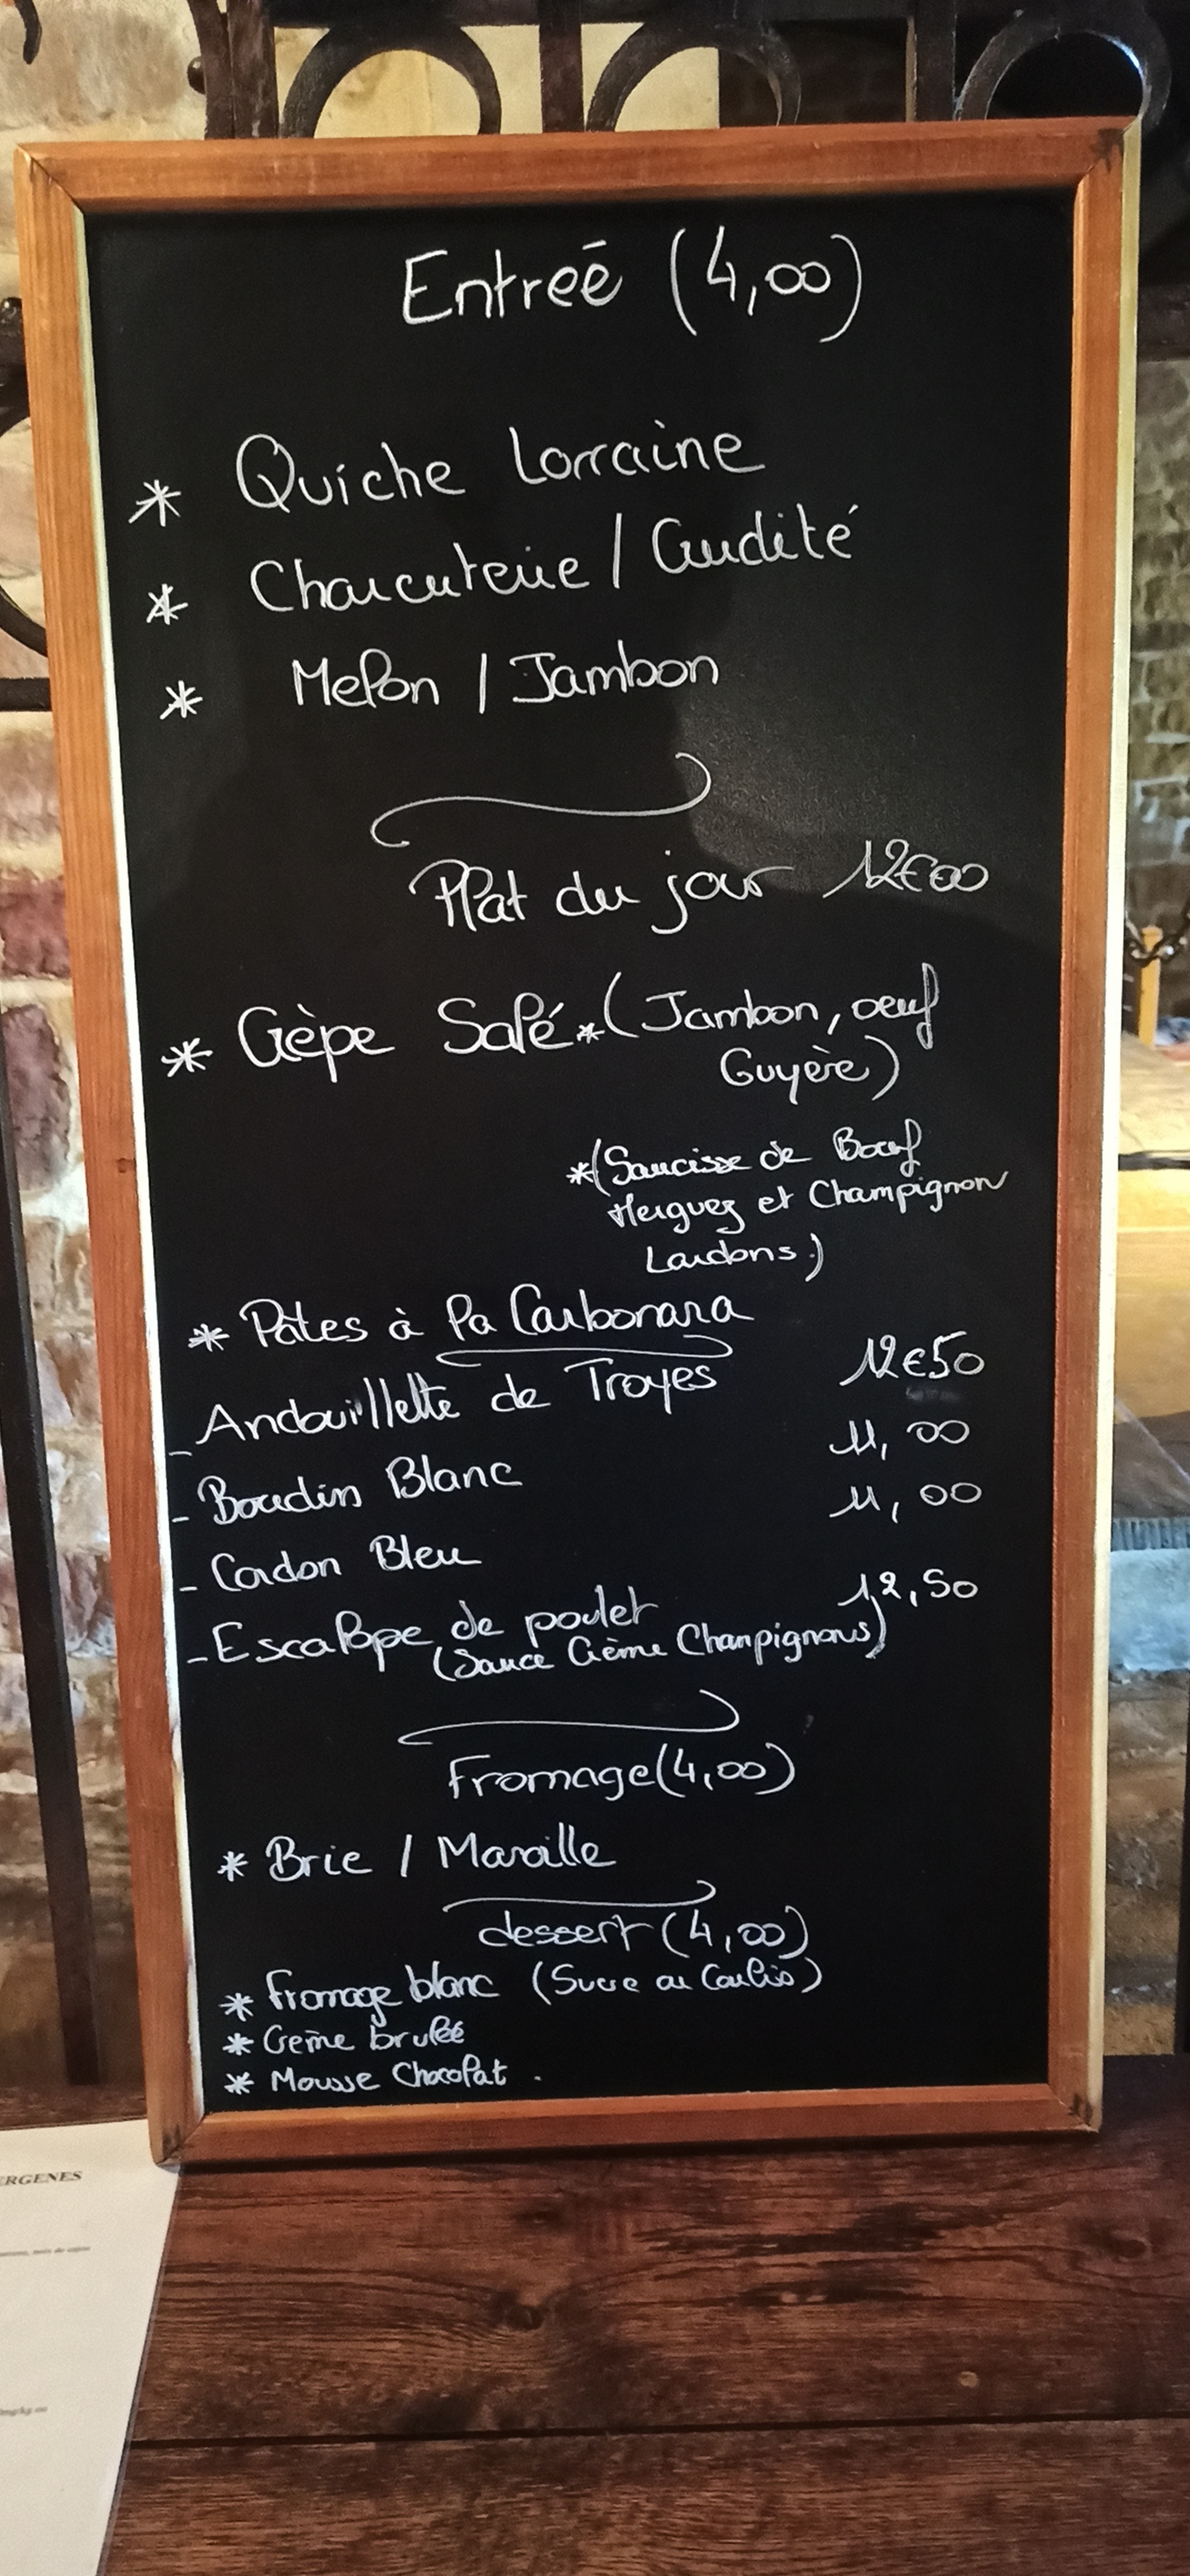 Entreé (4,00)
* Quiche Lorraine
* Charcuterie / Crudité
* Melon / Jambon
Plat du jour 12€00
* Crèpe Salé * (Jambon, oeuf
Gruyère)
*(Saucisse de Boeuf
Merguez et Champignon
Lardons)
* Pâtes à la Carbonara
- Andouillette de Troyes 12€50
- Boudin Blanc 11,00
- Cordon Bleu 11,00
- Escalope de poulet 12,50
(Sauce Crème Champignons)
Fromage (4,00)
* Brie / Maroille
dessert (4,00)
* fromage blanc (Sucre ou Coulis)
* Crème brulée
* Mousse Chocolat .
ERGENES